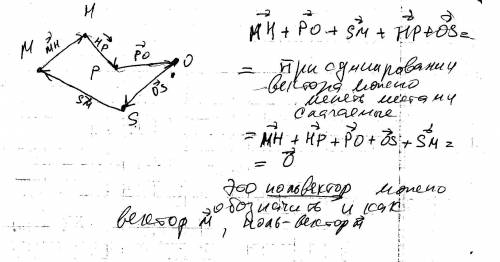 H
M
MH
HP
P
PO
O
OS
SM
S
MH + PO + SM + HP + OS =
= При суммировании
вектора можно
менять местами
слагаемые
= MH + HP + PO + OS + SM =
= 0
Это нольвектор можно
обозначить и как
вектор M, ноль-вектор